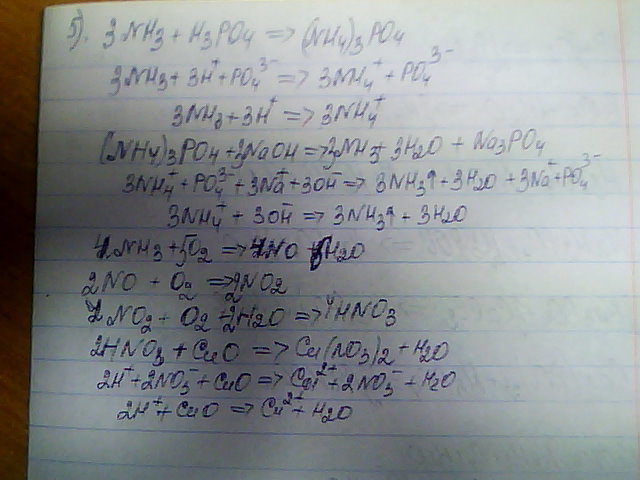 5). 3NH3 + H3PO4 => (NH4)3PO4
3NH3 + 3H⁺ + PO4³⁻ => 3NH4⁺ + PO4³⁻
3NH3 + 3H⁺ => 3NH4⁺
(NH4)3PO4 + 3NaOH => 3NH3 + 3H2O + Na3PO4
3NH4⁺ + PO4³⁻ + 3Na⁺ + 3OH⁻ => 3NH3↑ + 3H2O + 3Na⁺ + PO4³⁻
3NH4⁺ + 3OH⁻ => 3NH3↑ + 3H2O
4NH3 + 5O2 => 4NO + 6H2O
2NO + O2 => 2NO2
4NO2 + O2 + 2H2O => 4HNO3
2HNO3 + CuO => Cu(NO3)2 + H2O
2H⁺ + 2NO3⁻ + CuO => Cu²⁺ + 2NO3⁻ + H2O
2H⁺ + CuO => Cu²⁺ + H2O